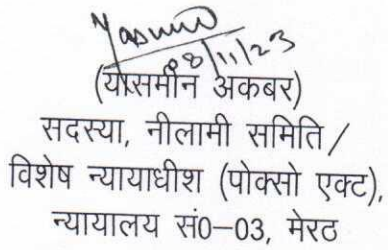 Yasmin
08/11/23
(यासमीन अकबर)
सदस्या, नीलामी समिति/
विशेष न्यायाधीश (पोक्सो एक्ट),
न्यायालय सं0-03, मेरठ